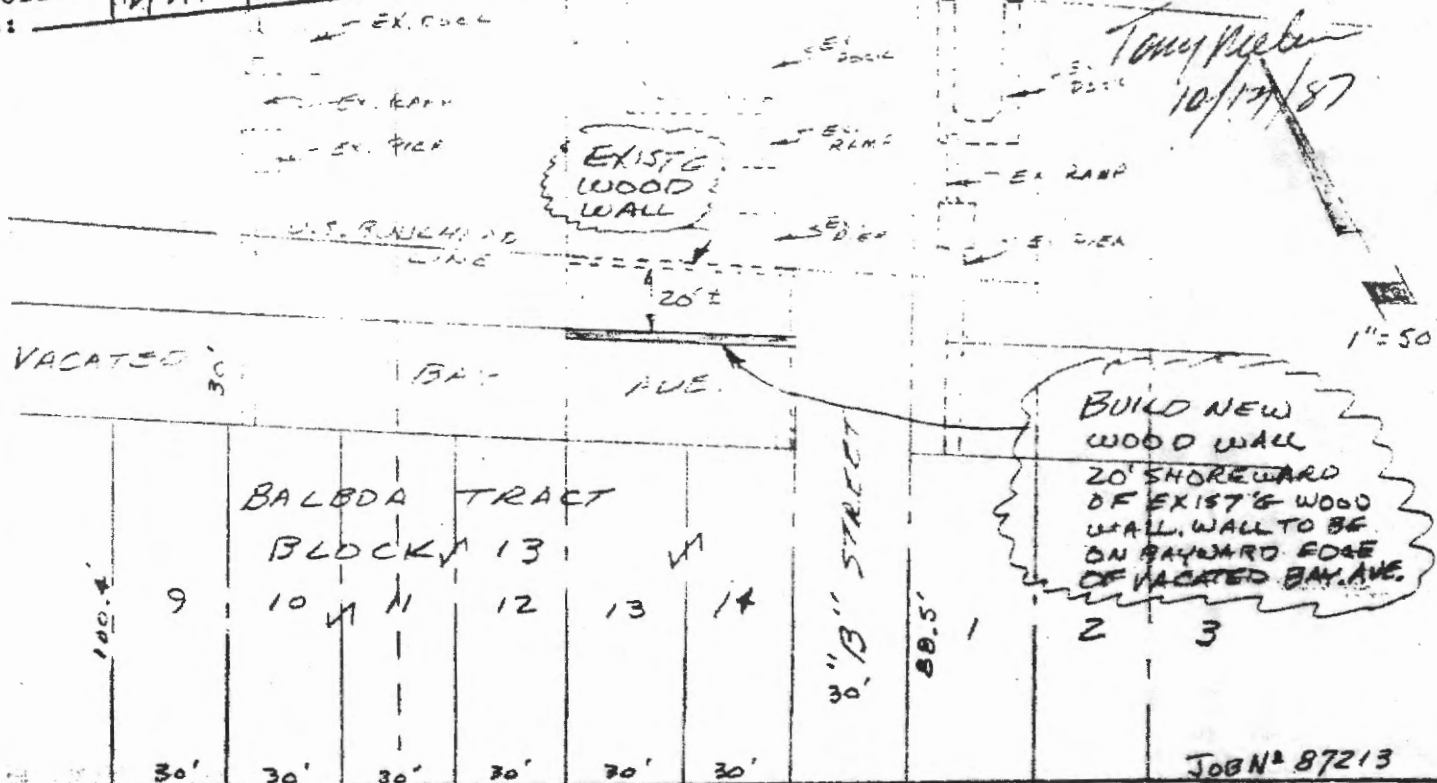 EX. DOCK
EX. RAMP
EX. PIER
EX. DOCK
EX. RAMP
EX. PIER
EX. DOCK
EX RAMP
EX. PIER
Tony
10/17/87
EXIST'G
WOOD
WALL
U.S. BULKHEAD
LINE
20' ±
1"=50'
VACATED
30'
BAY
AVE.
BUILD NEW
WOOD WALL
20' SHOREWARD
OF EXIST'G WOOD
WALL. WALL TO BE
ON BAYWARD EDGE
OF VACATED BAY. AVE.
BALBOA TRACT
BLOCK 13
100.4'
9
10
11
12
13
14
30' "B" STREET
88.5'
1
2
3
30'
30'
30'
30'
30'
30'
JOB Nº 87213